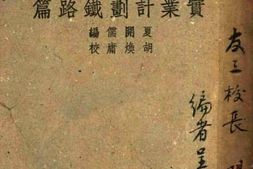 實業計劃鐵路篇
胡煥庸校
夏開儒編
友三校長
編者呈